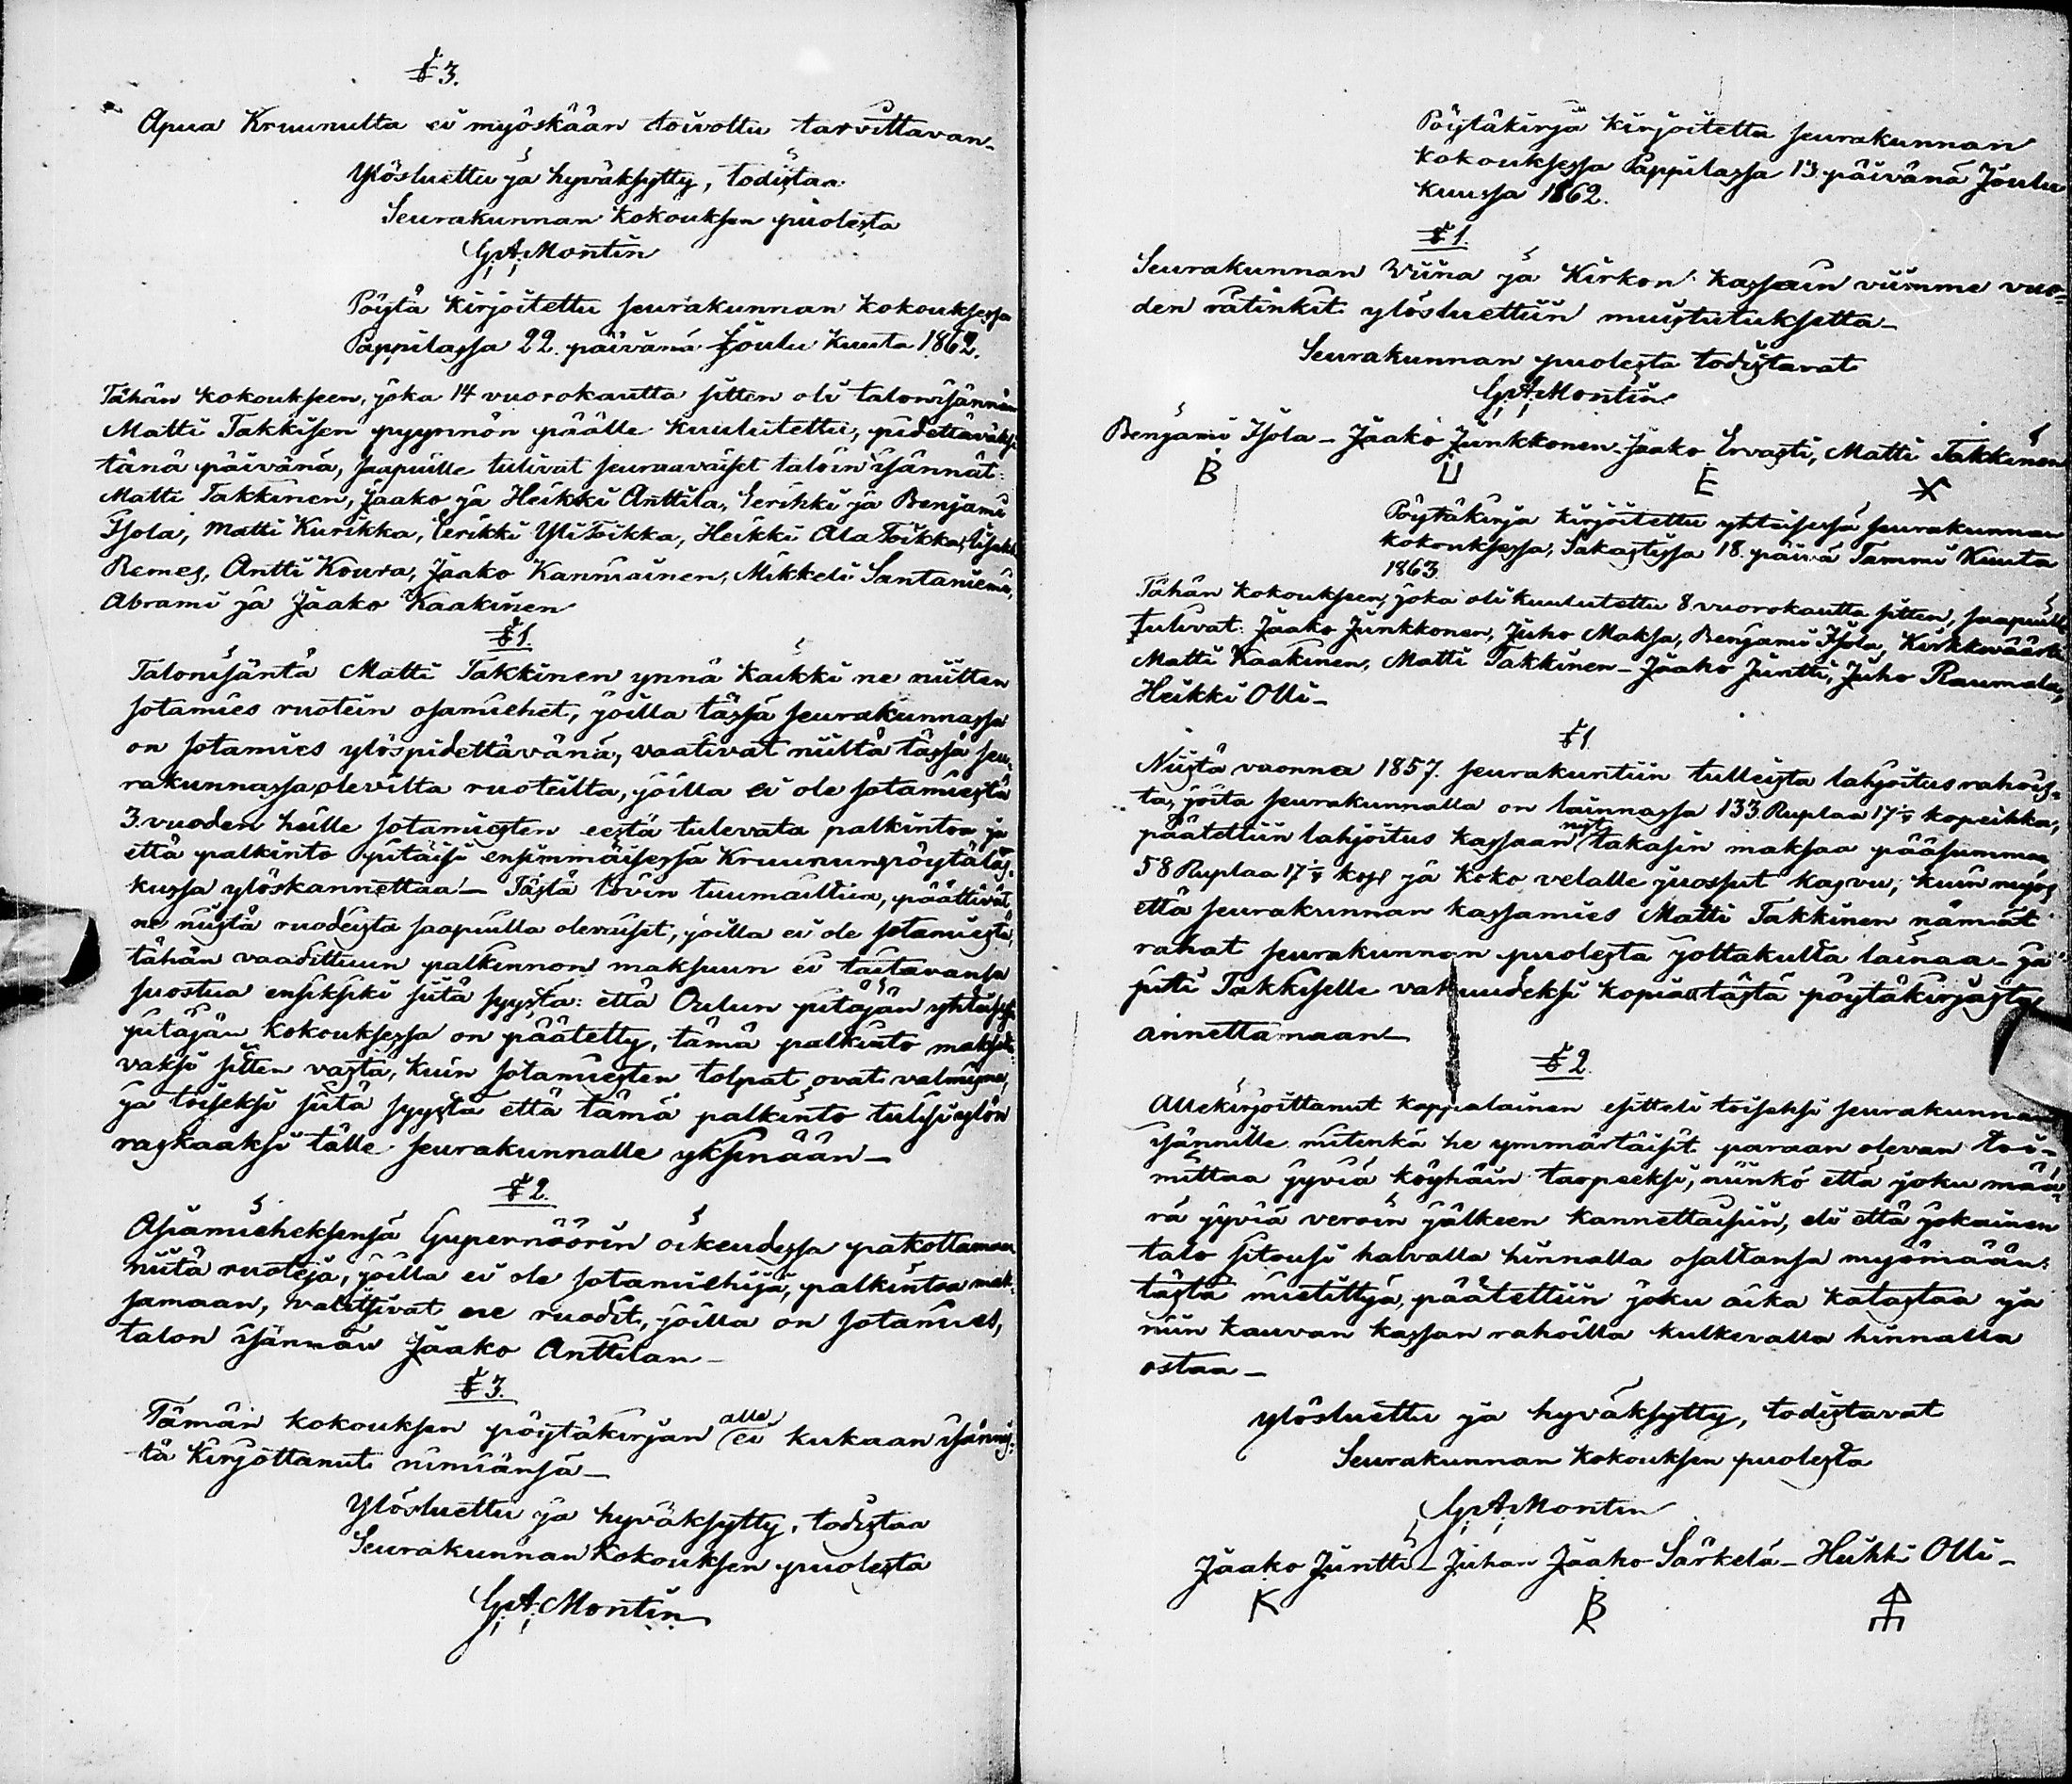 § 3.
Apua Kruunulta ei myöskään toivottu tarvittavan_
Ylösluettu ja hyväksytty, todistaa
Seurakunnan kokouksen puolesta
G. A. Montin
Pöytä kirjoitettu seurakunnan kokouksessa
Pappilassa 22. päivänä Joulu Kuuta 1862.
Tähän kokoukseen, joka 14 vuorokautta sitten oli talonisännän
Matti Takkisen pyynnön päälle kuulutettu, pidettäväksi
tänä päivänä, saapuille tulivat seuraavaiset taloin isännät:
Matti Takkinen, Jaako ja Heikki Anttila, Eerikki ja Benjami
Isola, Matti Kurikka, Eerikki Ylitoikka, Heikki Ala Toikka,
Remes, Antti Koura, Jaako Kanniainen, Mikkeli Santaniemi,
Abrami ja Jaako Kaakinen
§ 1.
Talonisäntä Matti Takkinen ynnä kaikki ne niitten
sotamies ruotein osamiehet, joilla tässä seurakunnassa
on sotamies ylöspidettävänä, vaativat niiltä tässä seu-
rakunnassa olevilta ruoteilta, joilla ei ole sotamiestä
3. vuoden heille sotamiesten eestä tulevata palkintoa ja
että palkinto pitäisi ensimmäisessä Kruunun pöytälas-
kussa ylöskannettaa!_ Tästä kovin tuumailtua, päättivät
ne niistä ruodeista saapuilla olevaiset, joilla ei ole sotamiestä,
tähän vaadittuun palkinnon maksuun ei taitavansa
suostua ensiksiki siitä syystä: että Oulun pitäjän yhteisessä
pitäjän kokouksessa on päätetty, tämä palkinto maksetta-
vaksi sitten vasta, kuin sotamiesten tolpat ovat valmisna,
ja toiseksi siitä syystä että tämä palkinto tulisi ylön
raskaaksi tälle seurakunnalle yksinään_
§ 2.
Asiamieheksensä Gupernöörin oikeudessa pakottamaan
niitä ruoteja, joilla ei ole sotamiehiä, palkintoa mak-
samaan, valitsivat ne ruodit, joilla on sotamies,
talon isännän Jaako Anttilan_
§ 3.
Tämän kokouksen pöytäkirjan alle ei kukaan isännis-
tä kirjottanut nimiänsä_
Ylösluettu ja hyväksytty, todistaa
Seurakunnan Kokouksen puolesta
G. A. Montin
Pöytäkirja kirjoitettu seurakunnan
kokouksessa Pappilassa 13. päivänä Joulu
kuussa 1862.
§ 1.
Seurakunnan Viina ja Kirkon kassain viimme vuo-
den rätinkit ylösluettiin muistutuksetta_
Seurakunnan puolesta todistavat
G. A. Montin
Benjami Isola_ Jaako Junkkonen_ Jaako Ervasti, Matti Takkinen
B U E X
Pöytäkirja kirjoitettu yhteisessä seurakunnan
kokouksessa, Sakastissa 18. päivä Tammi Kuuta
1863
Tähän kokoukseen, joka oli kuulutettu 8 vuorokautta sitten, saapuille
tulivat: Jaako Junkkonen, Juho Maksa, Benjami Isola, Kirkkoväärti
Matti Kaakinen, Matti Takkinen_ Jaako Juntti, Juho Raumala,
Heikki Olli_
§ 1.
Niistä vuonna 1857. seurakuntiin tulleista lahjoitus rahois-
ta, joita seurakunnalla on lainnassa 133 Ruplaa 17 1/7 kopeikka,
päätettiin lahjoitus kassaan nyt takasin maksaa pääsumman
58 Ruplaa 17 1/7 kop ja koko velalle juossut kasvu, kuin myös
että seurakunnan kassamies Matti Takkinen nämät
rahat seurakunnan puolesta joltakulta lainaa_ ja
siti Takkiselle vakuudeksi kopia tästä pöytäkirjasta
annettamaan_
§ 2.
Allekirjoittanut kappalainen esitteli toiseksi seurakunnan
isännille mitenkä he ymmärtäisit paraan olevan toi-
mittaa jyviä köyhäin tarpeeksi, niinkö että joku mää-
rä jyviä veroin jälkeen kannettaisiin, eli että jokainen
talo sitousi halvalla hinnalla osaltansa myömään:
tästä mietittyä, päätettiin joku aika katastaa ja
niin kauvan kassan rahoilla kulkevalla hinnalla
ostaa_
ylösluettu ja hyväksytty, todistavat
Seurakunnan kokouksen puolesta
G. A. Montin
Jaako Juntti_ Juhan Jaako Särkelä_ Heikki Olli_
K B